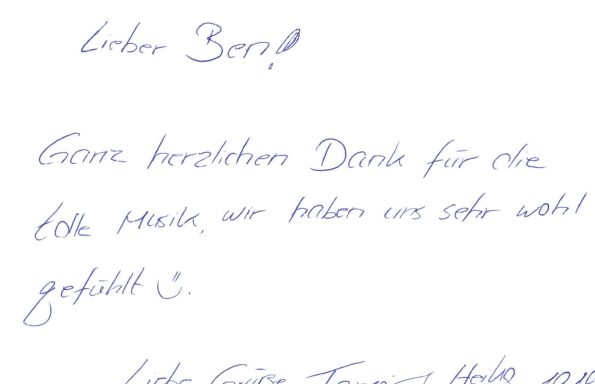 Lieber Ben!
Ganz herzlichen Dank für die
tolle Musik, wir haben uns sehr wohl
gefühlt ☺.
Liebe Grüße